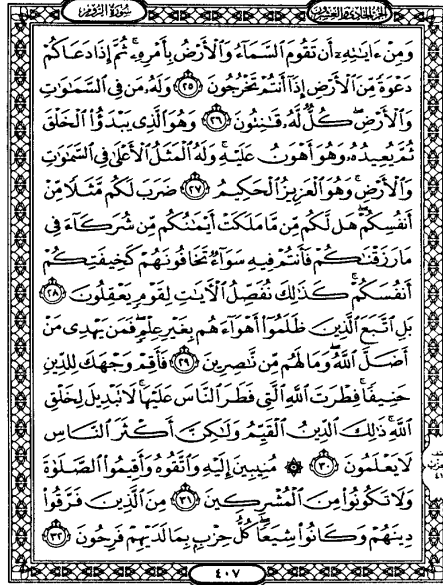 الجزء الحادي والعشرون سورة الروم
وَمِنْ ءَايَٰتِهِۦٓ أَن تَقُومَ ٱلسَّمَآءُ وَٱلْأَرْضُ بِأَمْرِهِۦ ۚ ثُمَّ إِذَا دَعَاكُمْ
دَعْوَةً مِّنَ ٱلْأَرْضِ إِذَآ أَنتُمْ تَخْرُجُونَ ۝٢٥ وَلَهُۥ مَن فِى ٱلسَّمَٰوَٰتِ
وَٱلْأَرْضِ ۖ كُلٌّ لَّهُۥ قَٰنِتُونَ ۝٢٦ وَهُوَ ٱلَّذِى يَبْدَؤُا۟ ٱلْخَلْقَ
ثُمَّ يُعِيدُهُۥ وَهُوَ أَهْوَنُ عَلَيْهِ ۚ وَلَهُ ٱلْمَثَلُ ٱلْأَعْلَىٰ فِى ٱلسَّمَٰوَٰتِ
وَٱلْأَرْضِ ۚ وَهُوَ ٱلْعَزِيزُ ٱلْحَكِيمُ ۝٢٧ ضَرَبَ لَكُم مَّثَلًا مِّنْ
أَنفُسِكُمْ ۖ هَل لَّكُم مِّن مَّا مَلَكَتْ أَيْمَٰنُكُم مِّن شُرَكَآءَ فِى
مَا رَزَقْنَٰكُمْ فَأَنتُمْ فِيهِ سَوَآءٌ تَخَافُونَهُمْ كَخِيفَتِكُمْ
أَنفُسَكُمْ ۚ كَذَٰلِكَ نُفَصِّلُ ٱلْءَايَٰتِ لِقَوْمٍ يَعْقِلُونَ ۝٢٨
بَلِ ٱتَّبَعَ ٱلَّذِينَ ظَلَمُوٓا۟ أَهْوَآءَهُم بِغَيْرِ عِلْمٍ ۖ فَمَن يَهْدِى مَنْ
أَضَلَّ ٱللَّهُ ۖ وَمَا لَهُم مِّن نَّٰصِرِينَ ۝٢٩ فَأَقِمْ وَجْهَكَ لِلدِّينِ
حَنِيفًا ۚ فِطْرَتَ ٱللَّهِ ٱلَّتِى فَطَرَ ٱلنَّاسَ عَلَيْهَا ۚ لَا تَبْدِيلَ لِخَلْقِ
ٱللَّهِ ۚ ذَٰلِكَ ٱلدِّينُ ٱلْقَيِّمُ وَلَٰكِنَّ أَكْثَرَ ٱلنَّاسِ
لَا يَعْلَمُونَ ۝٣٠ ۞ مُنِيبِينَ إِلَيْهِ وَٱتَّقُوهُ وَأَقِيمُوا۟ ٱلصَّلَوٰةَ
وَلَا تَكُونُوا۟ مِنَ ٱلْمُشْرِكِينَ ۝٣١ مِنَ ٱلَّذِينَ فَرَّقُوا۟
دِينَهُمْ وَكَانُوا۟ شِيَعًا ۖ كُلُّ حِزْبٍۭ بِمَا لَدَيْهِمْ فَرِحُونَ ۝٣٢
٤٠٧